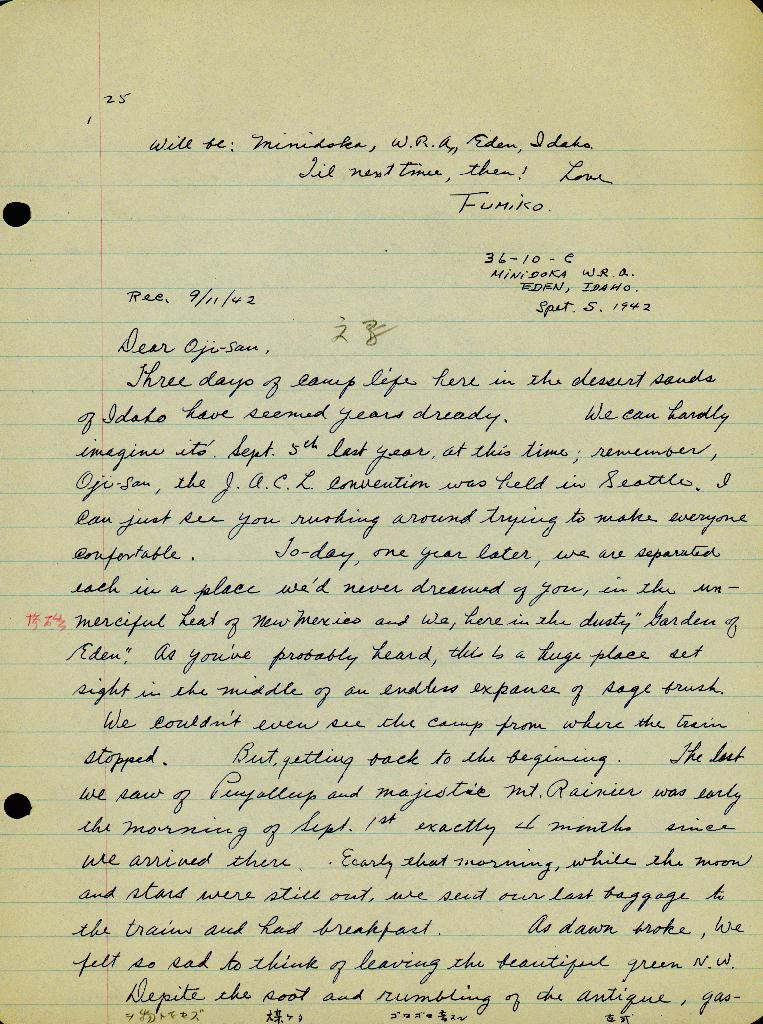 25
Will be: Minidoka, W.R.A., Eden, Idaho.
Til next time, then! Love
FUMIKO.
36-10-C
MINIDOKA W.R.A.
EDEN, IDAHO.
Spet. 5. 1942
Rec. 9/11/42
Dear Oji-San,
Three days of camp life here in the dessert sands
of Idaho have seemed years dready. We can hardly
imagine its. Sept. 5th last year, at this time; remember,
Oji-San, the J.A.C.L. convention was held in Seattle. I
can just see you rushing around trying to make everyone
confortable. To-day, one year later, we are separated
each in a place we'd never dreamed of you, in the un-
merciful heat of New Mexico and we, here in the dusty "Garden of
Eden". As you've probably heard, this is a huge place set
sight in the middle of an endless expanse of sage brush.
We couldn't even see the camp from where the train
stopped. But, getting back to the begining. The last
we saw of Puyallup and majestic Mt. Rainier was early
the morning of Sept. 1st exactly 4 months since
we arrived there. Early that morning, while the moon
and stars were still out, we sent our last baggage to
the train and had breakfast. As dawn broke, we
felt so sad to think of leaving the beautiful green N.W.
Depite the soot and rumbling of the antique, gas-
煤ケ ゴロゴロ 古式